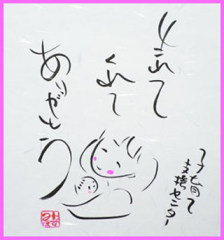 生まれて
くれて
ありがとう
子育て
支援センター